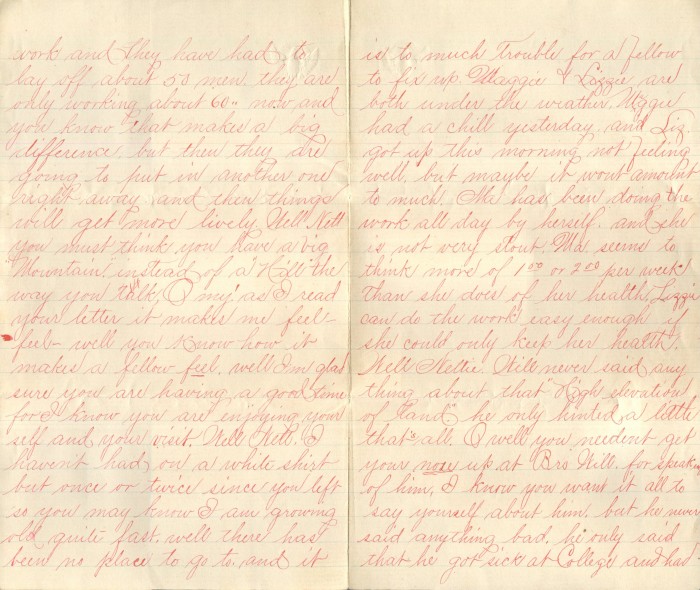 work and they have had to
lay off about 50 men. they are
only working about 60" now and
you know that makes a big
difference. but then they are
going to put in another one
right away and then things
will get more lively. Well Nett
you must think you have a big
"Mountain" instead of a "Hill" the
way you talk, O my! as I read
your letter it makes me feel-
feel- well you know how it
makes a fellow feel. well I'm glad
sure you are having a good time
for I know you are enjoying your
self and your visit. Well Nett. I
haven't had on a white shirt
but once or twice since you left
so you may know I am growing
old quite fast. well there has
been no place to go to. and it
is to much trouble for a fellow
to fix up. Maggie & Lizzie are
both under the weather.
had a chill yesterday. and Liz
got up this morning not feeling
well. but maybe it wont amount
to much. Ma has been doing the
work all day by herself. and she
is not very stout. Ma seems to
think more of 1 00 or 2 00 per week
than she does of her health, Lizzie
can do the work easy enough if
she could only keep her health.
Well Nettie. Will never said any
thing about that "High elevation
of Land" he only hinted a little
that's all. O well you needent get
your nose up at Bro Will. for speaking
of him, I know you want it all to
say yourself about him. but he never
said anything bad. he only said
that he got sick at College and had